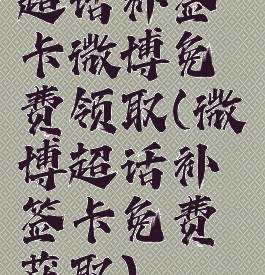 超话补签
卡微博免
费领取(微
博超话补
签卡免费
获取)